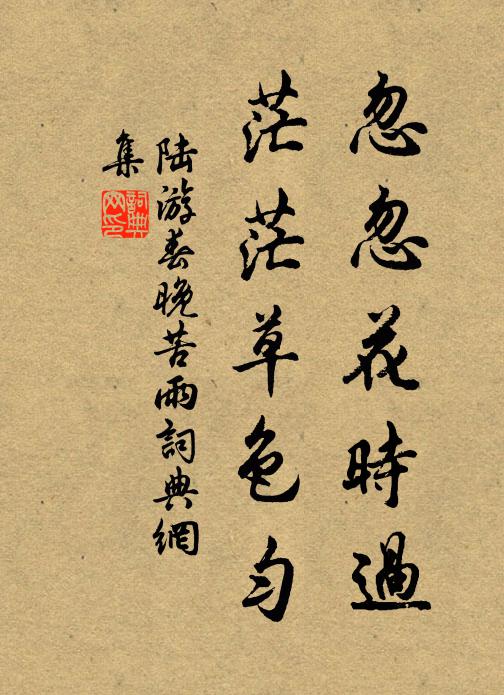 忽忽花時過
茫茫草色勻
陸游春晚苦雨詞典網
集
詞典網印